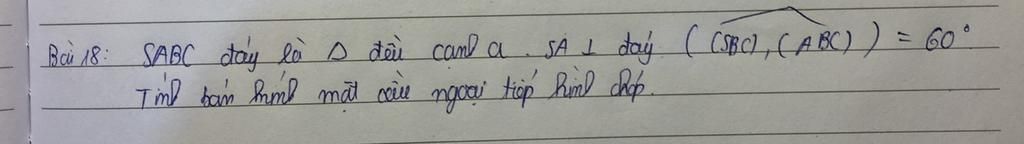 Bài 18: SABC đáy là Δ đều cạnh a. SA ⊥ đáy ((SBC), (ABC)) = 60°
Tính bán kính mặt cầu ngoại tiếp hình chóp.